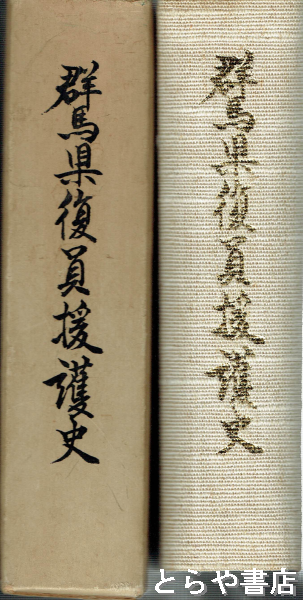 群馬県復員援護史
群馬県復員援護史
とらや書店